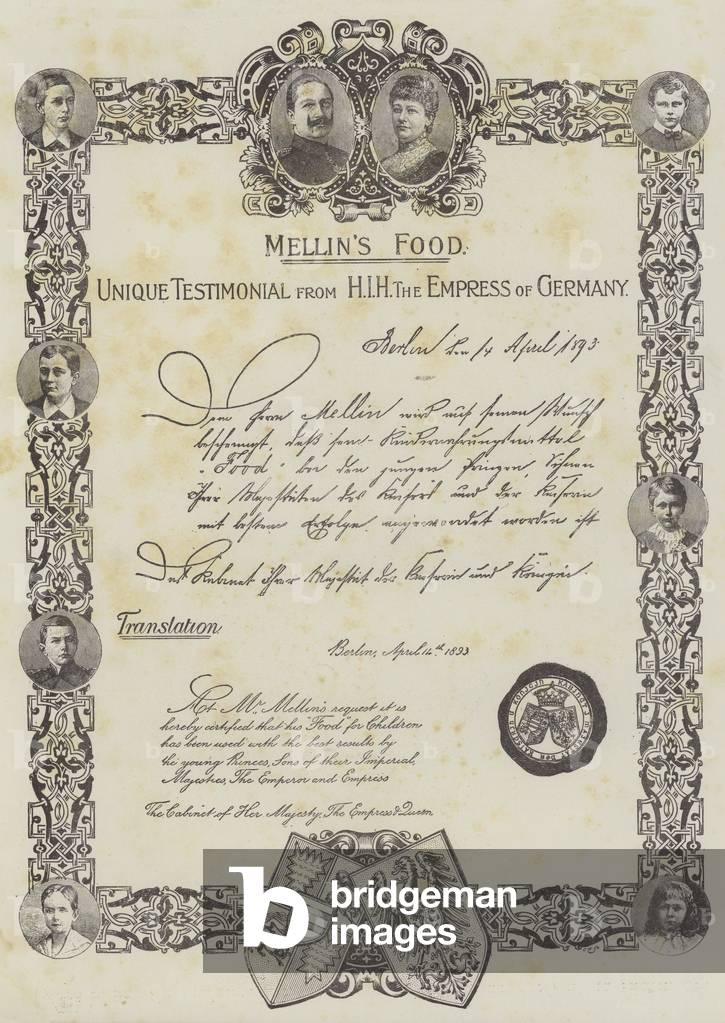 MELLIN'S FOOD.
UNIQUE TESTIMONIAL FROM H.I.H. THE EMPRESS OF GERMANY.
Berlin den 14 April 1893
Dem Herrn Mellin wird auf seinen Wunsch
bescheinigt, daß sein Kindernahrungsmittel
"Food" bei den jungen Prinzen, Söhnen
Ihrer Majestäten des Kaisers und der Kaiserin
mit bestem Erfolge angewendet worden ist
Das Kabinet Ihrer Majestät der Kaiserin und Königin.
Translation
Berlin, April 14th 1893
At Mr. Mellin's request it is
hereby certified that his "Food" for Children
has been used with the best results by
the young Princes, Sons of their Imperial
Majesties, The Emperor and Empress
The Cabinet of Her Majesty, The Empress & Queen
b bridgeman
images